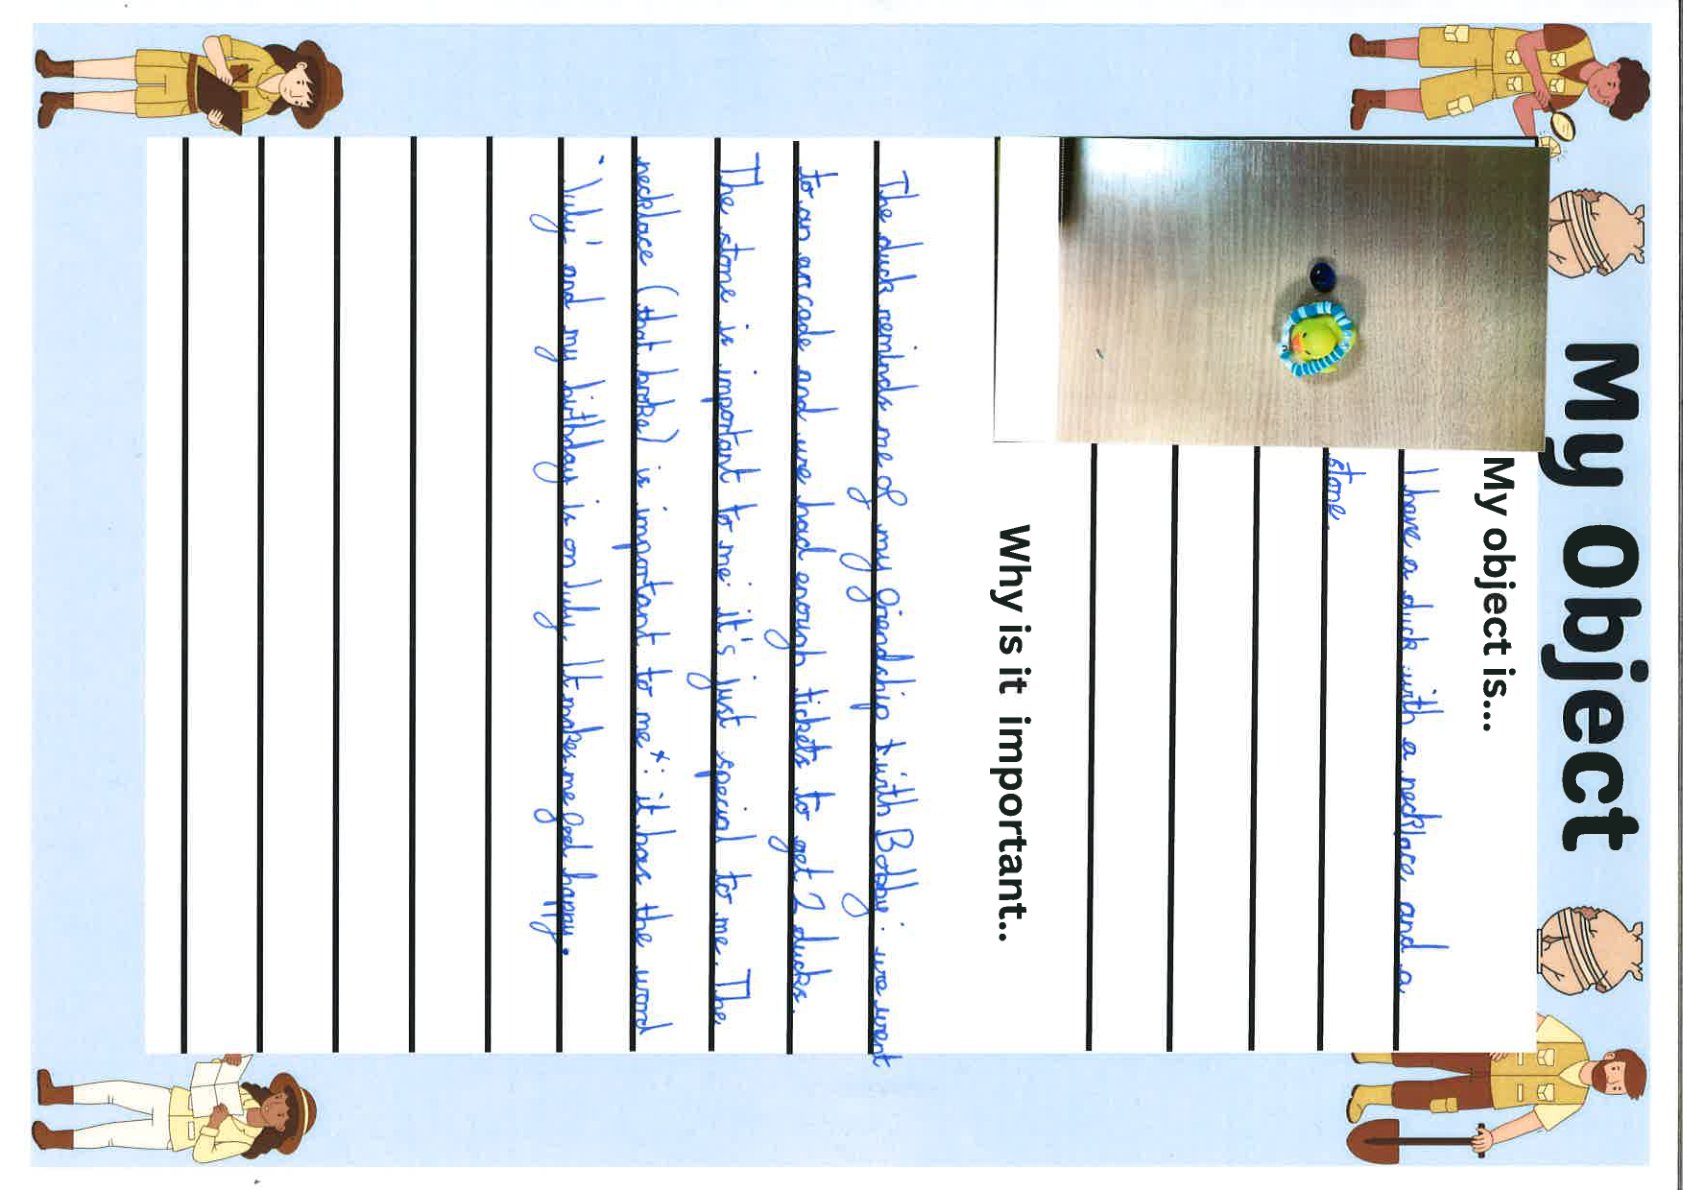 My Object
My object is...
I have a duck with a necklace and a
stone.
Why is it important..
The duck reminds me of my friendship with Bobby: we went
to an arcade and we had enough tickets to get 2 ducks.
The stone is important to me: it's just special to me. The
necklace (that broke) is important to me*: it has the word
'July' and my birthday is on July. It makes me feel happy.